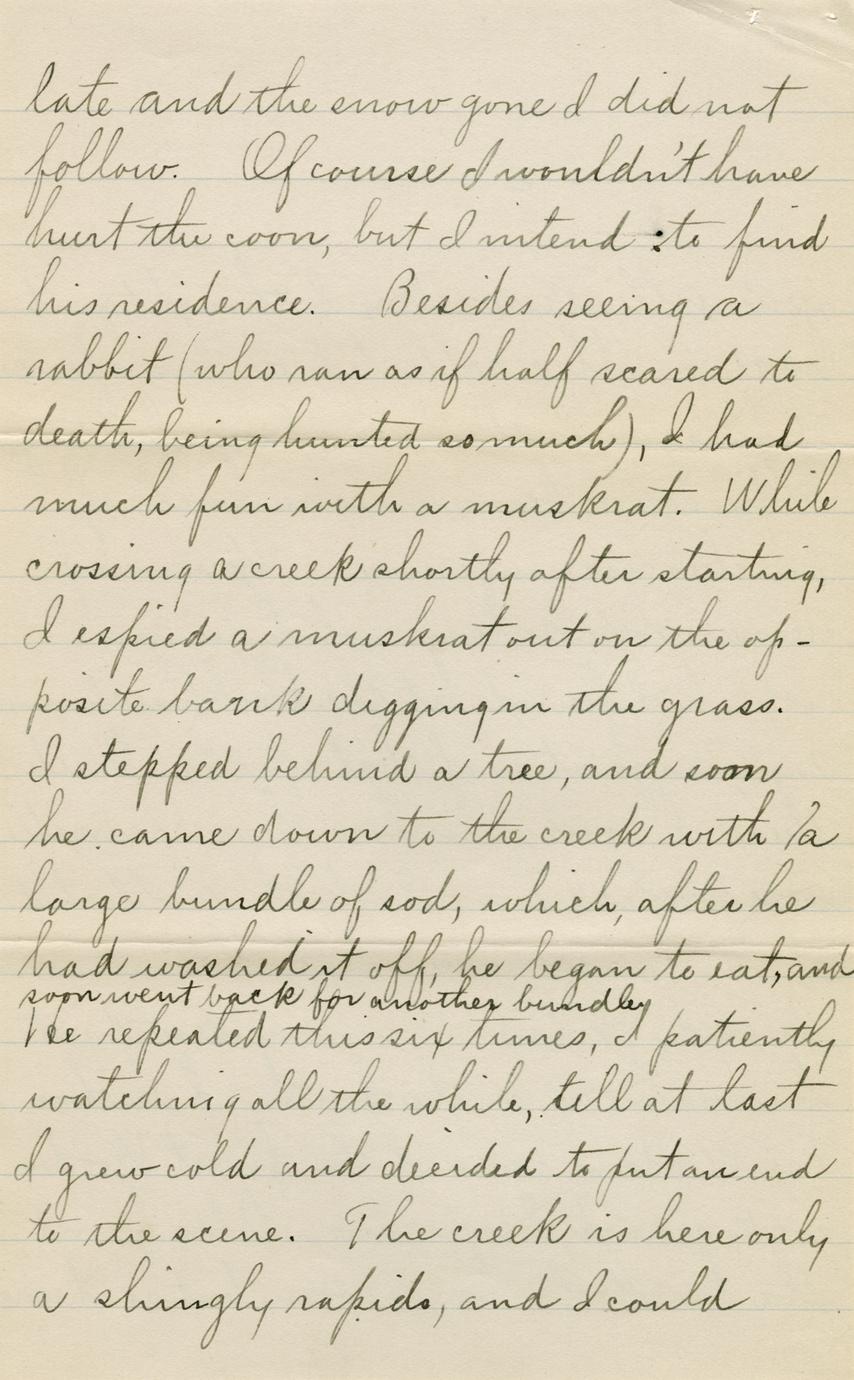 late and the snow gone I did not
follow. Of course I wouldn't have
hurt the coon, but I intend to find
his residence. Besides seeing a
rabbit (who ran as if half scared to
death, being hunted so much), I had
much fun with a muskrat. While
crossing a creek shortly after starting,
I espied a muskrat out on the op-
posite bank digging in the grass.
I stepped behind a tree, and soon
he came down to the creek with a
large bundle of sod, which, after he
had washed it off, he began to eat, and
soon went back for another bundle
He repeated this six times, I patiently
watching all the while, till at last
I grew cold and decided to put an end
to the scene. The creek is here only
a shingly rapids, and I could